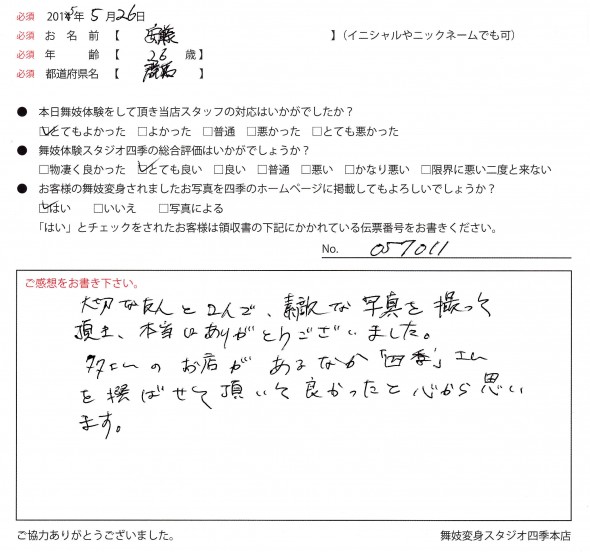 必須 2015年 5月26日
必須 お 名 前 【 安藤 】(イニシャルやニックネームでも可)
必須 年 齢 【 26 歳】
必須 都道府県名 【 】
● 本日舞妓体験をして頂き当店スタッフの対応はいかがでしたか?
☑とてもよかった □よかった □普通 □悪かった □とても悪かった
● 舞妓体験スタジオ四季の総合評価はいかがでしょうか?
□物凄く良かった ☑とても良い □良い □普通 □悪い □かなり悪い □限界に悪い二度と来ない
● お客様の舞妓変身されましたお写真を四季のホームページに掲載してもよろしいでしょうか?
☑はい □いいえ □写真による
「はい」とチェックをされたお客様は領収書の下記にかかれている伝票番号をお書きください。
No. 057011
ご感想をお書き下さい。
大切な友人と2人で、素敵な写真を撮って
頂き、本当にありがとうございました。
多くのお店があるなか「四季」さん
を選ばせて頂いて良かったと心から思い
ます。
ご協力ありがとうございました。 舞妓変身スタジオ四季本店